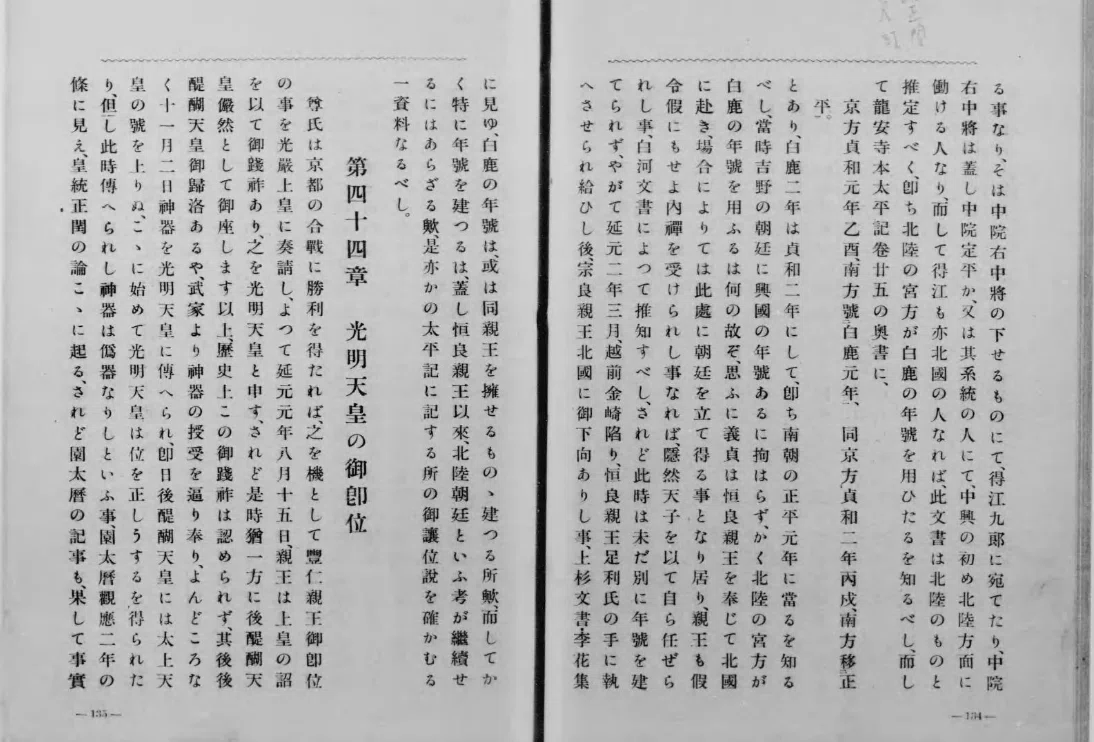 る事なり、そは中院右中將の下せるものにて、得江九郞に宛てたり、中院
右中將は蓋し中院定平か、又は其系統の人にて、中興の初め北陸方面に
働ける人なり、而して得江も亦北國の人なれば、此文書は北陸のものと
推定すべく、卽ち北陸の宮方が白鹿の年號を用ひたるを知るべし、而し
て龍安寺本太平記卷廿五の奧書に、
京方貞和元年乙酉、南方號白鹿元年、同京方貞和二年丙戌、南方移正
平。
とあり、白鹿二年は貞和二年にして、卽ち南朝の正平元年に當るを知る
べし、當時吉野の朝廷に興國の年號あるに拘はらず、かく北陸の宮方が
白鹿の年號を用ふるは何の故ぞ、思ふに義貞は恒良親王を奉じて北國
に赴き、場合によりては此處に朝廷を立て得る事となり居り、親王も假
令假にもせよ內禪を受けられし事なれば、隱然天子を以て自ら任ぜら
れし事、白河文書によつて推知すべし、されど此時は未だ別に年號を建
てられず、やがて延元二年三月、越前金崎陷り、恒良親王足利氏の手に執
へさせられ給ひし後、宗良親王北國に御下向ありし事、上杉文書李花集
―134―
に見ゆ、白鹿の年號は、或は同親王を擁せるものゝ建つる所歟、而してか
く特に年號を建つるは、蓋し恒良親王以來、北陸朝廷といふ考が繼續せ
るにはあらざる歟、是亦かの太平記に記する所の御讓位說を確かむる
一資料なるべし。
第四十四章　光明天皇の御卽位
尊氏は京都の合戰に勝利を得たれば、之を機として豐仁親王御卽位
の事を光嚴上皇に奏請し、よつて延元元年八月十五日、親王は上皇の詔
を以て御踐祚あり、之を光明天皇と申す、されど是時猶一方に後醍醐天
皇儼然として御座します以上、歷史上この御踐祚は認められず、其後後
醍醐天皇御歸洛あるや、武家より神器の授受を逼り奉り、よんどころな
く十一月二日神器を光明天皇に傳へられ、卽日後醍醐天皇には太上天
皇の號を上りぬ、こゝに始めて光明天皇は位を正しうするを得られた
り、但し此時傳へられし神器は僞器なりしといふ事、園太曆觀應二年の
條に見え、皇統正閏の論こゝに起る、されど園太曆の記事も、果して事實
―135―